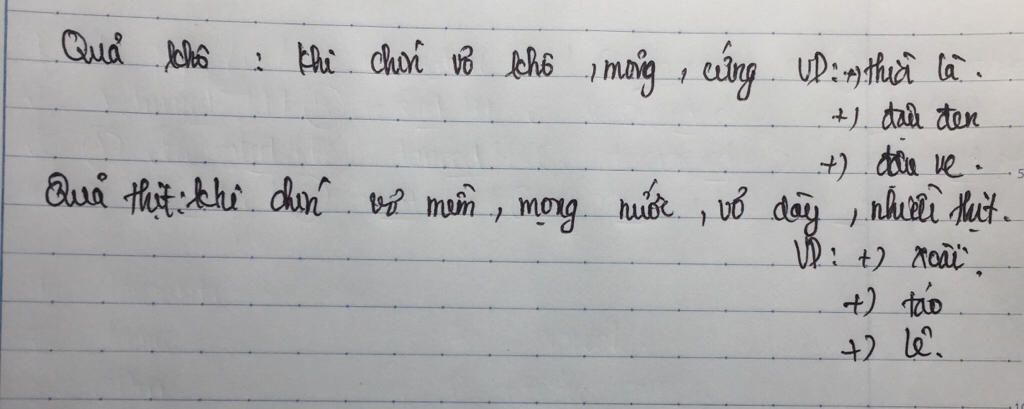 Quả khô : khi chín vỏ khô , mỏng , cứng VD: +) thìa là .
+) đậu đen
+) đậu ve .
Quả thịt : khi chín vỏ mềm , mọng nước , vỏ dày , nhiều thịt .
VD: +) xoài .
+) táo
+) lê .